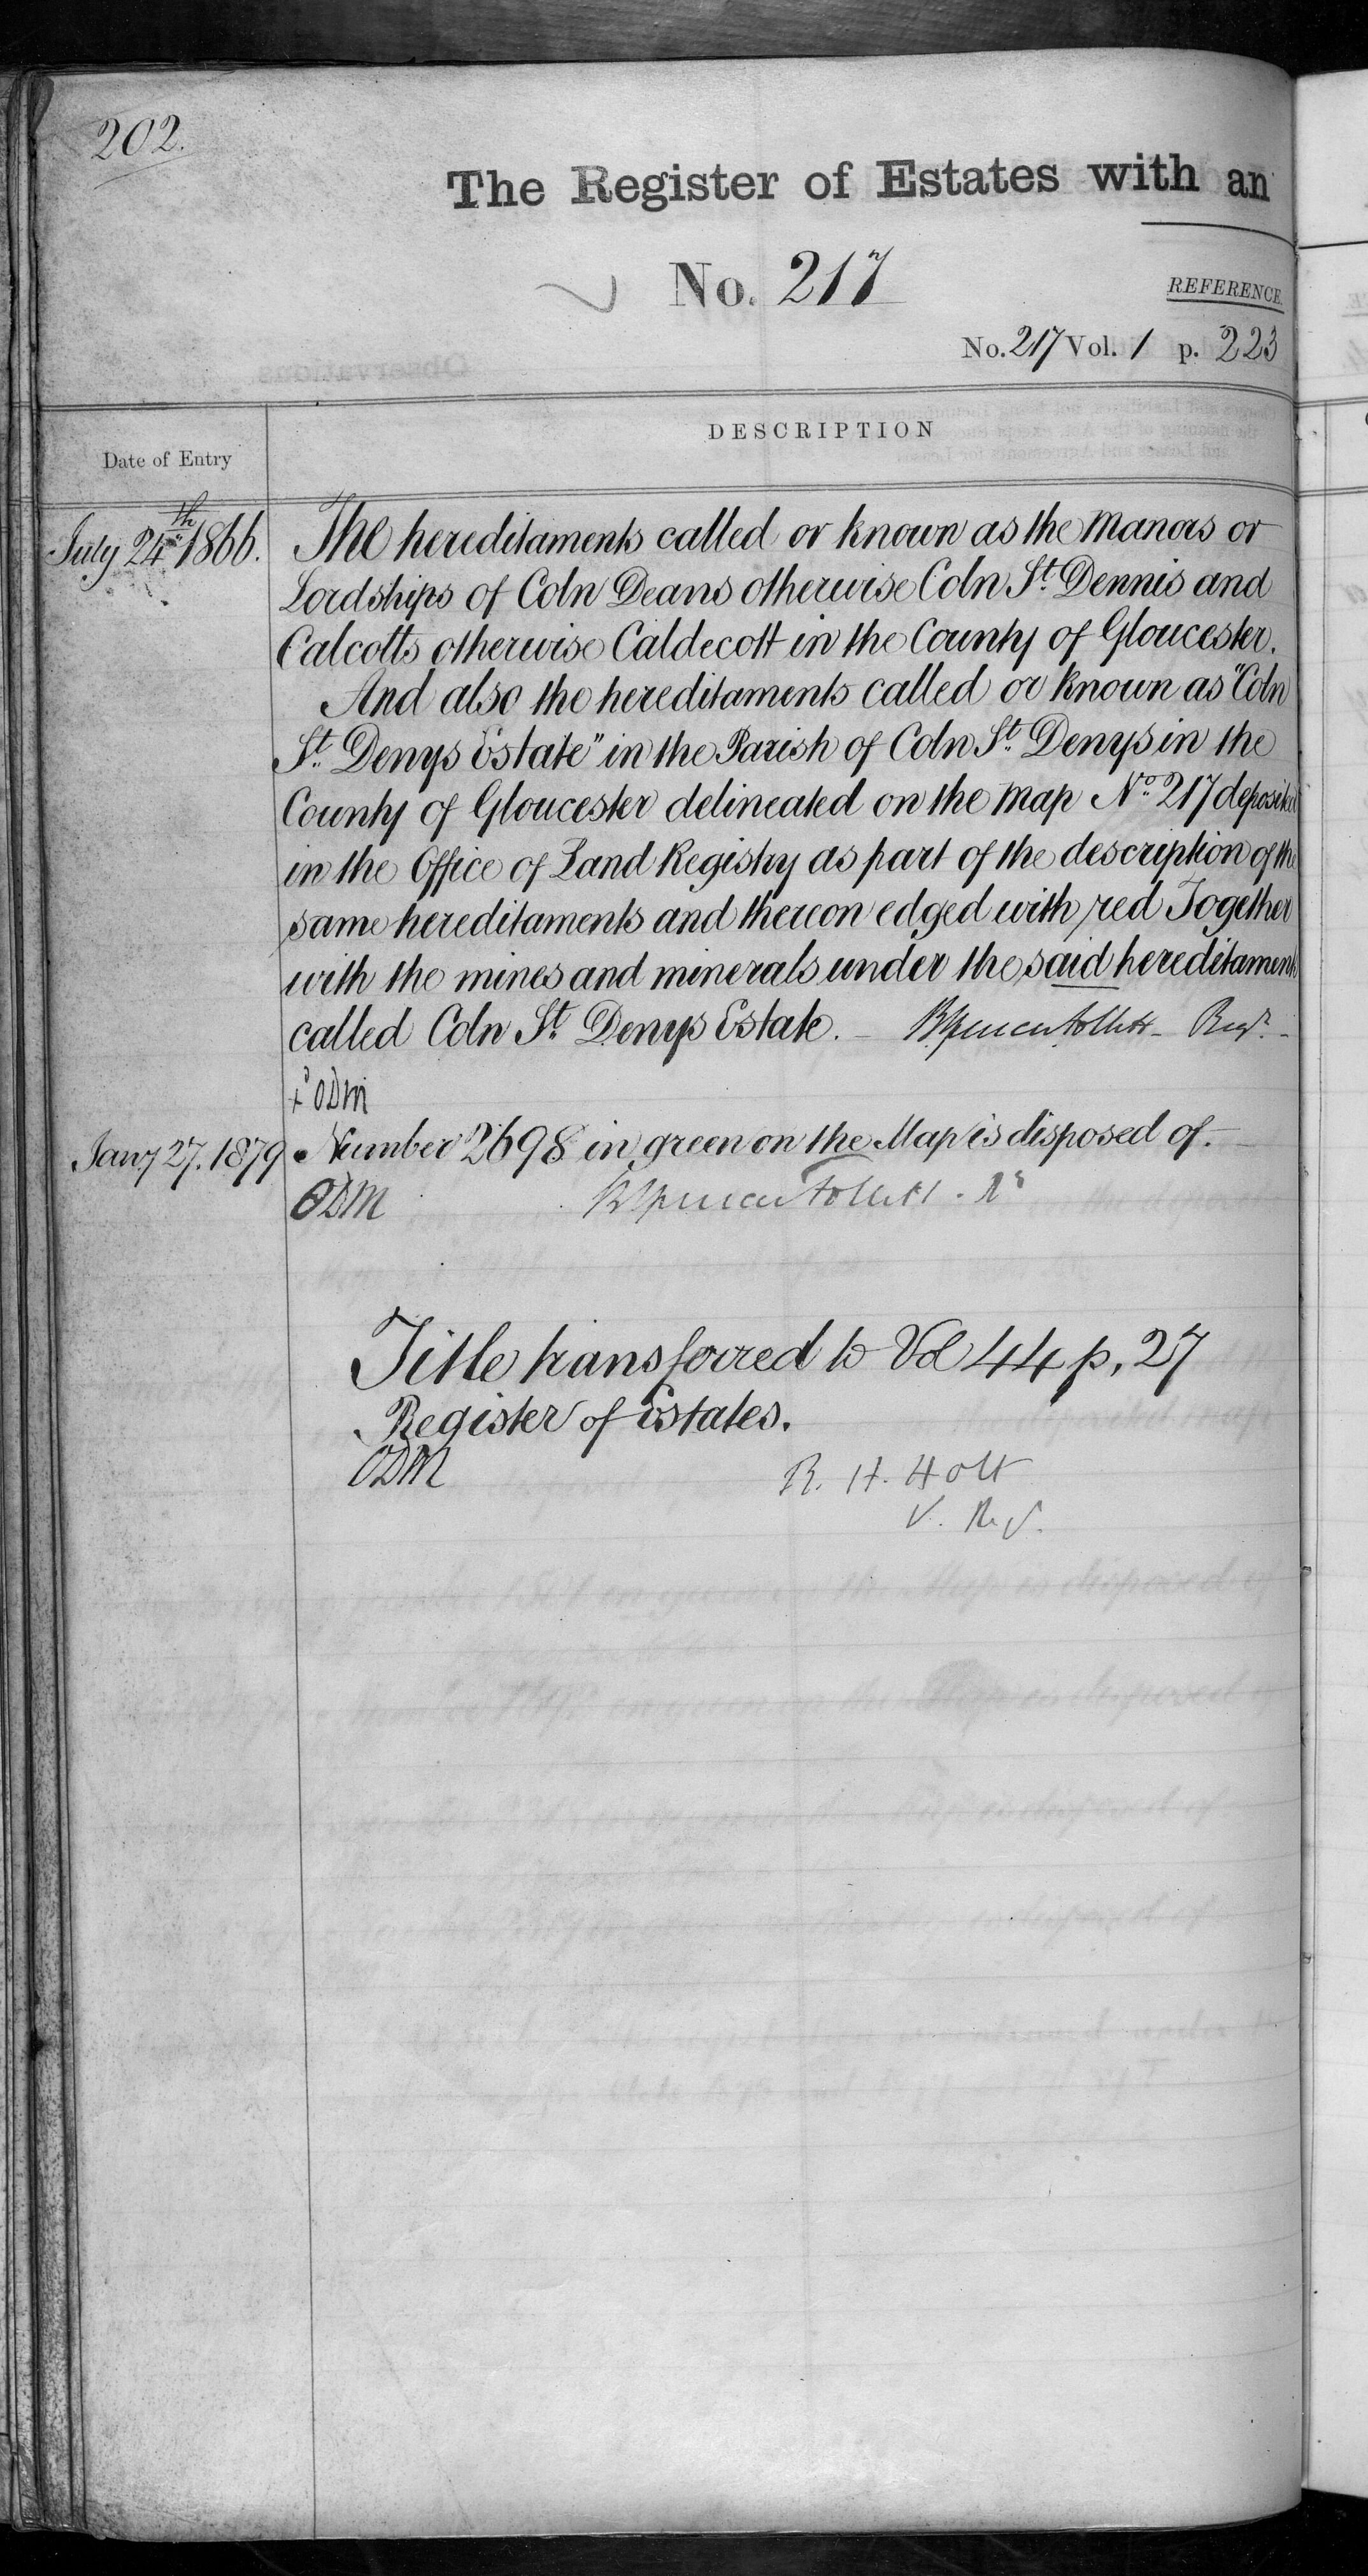 202.
The Register of Estates with an
No. 217
REFERENCE.
No. 217 Vol. 1 p. 223
DESCRIPTION
Date of Entry
July 24th 1866.
The hereditaments called or known as the Manors or
Lordships of Coln Deans otherwise Coln St. Dennis and
Calcotts otherwise Caldecott in the County of Gloucester.
And also the hereditaments called or known as "Coln
St. Denys Estate" in the Parish of Coln St. Denys in the
County of Gloucester delineated on the map No. 217 deposited
in the Office of Land Registry as part of the description of the
same hereditaments and thereon edged with red Together
with the mines and minerals under the said hereditaments
called Coln St. Denys Estate. — B Spencer Follett — Regr. —
ODM
Jany 27. 1879
Number 2698 in green on the Map is disposed of. —
ODM B Spencer Follett . Rr
Title transferred to Vol 44 p. 27
Register of Estates.
ODM
R. H. Holt